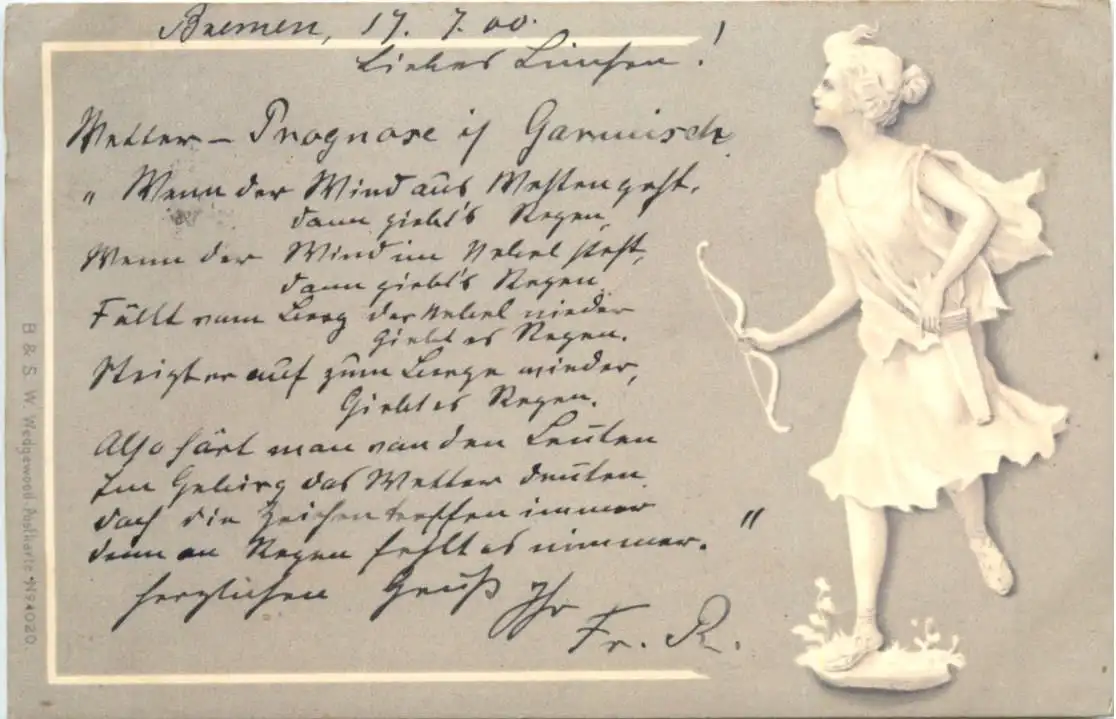 Bremen, 17. 7. 00.
Liebes Linchen!
Wetter – Prognose if Garmisch
„ Wenn der Wind aus Westen geht,
dann giebt's Regen,
Wenn der Wind im Nebel steht,
dann giebt's Regen
Fällt vom Berg der Nebel nieder
Giebt es Regen.
Steigt er auf zum Berge wieder,
Giebt es Regen.
Also hört man von den Leuten
Im Gebirg das Wetter deuten.
doch die Zeichen treffen immer
denn an Regen fehlt es nimmer. "
herzlichen Gruß Ihr
Fr. R.
B & S. W. Wedgewood-Postkarte • Nº 4020.